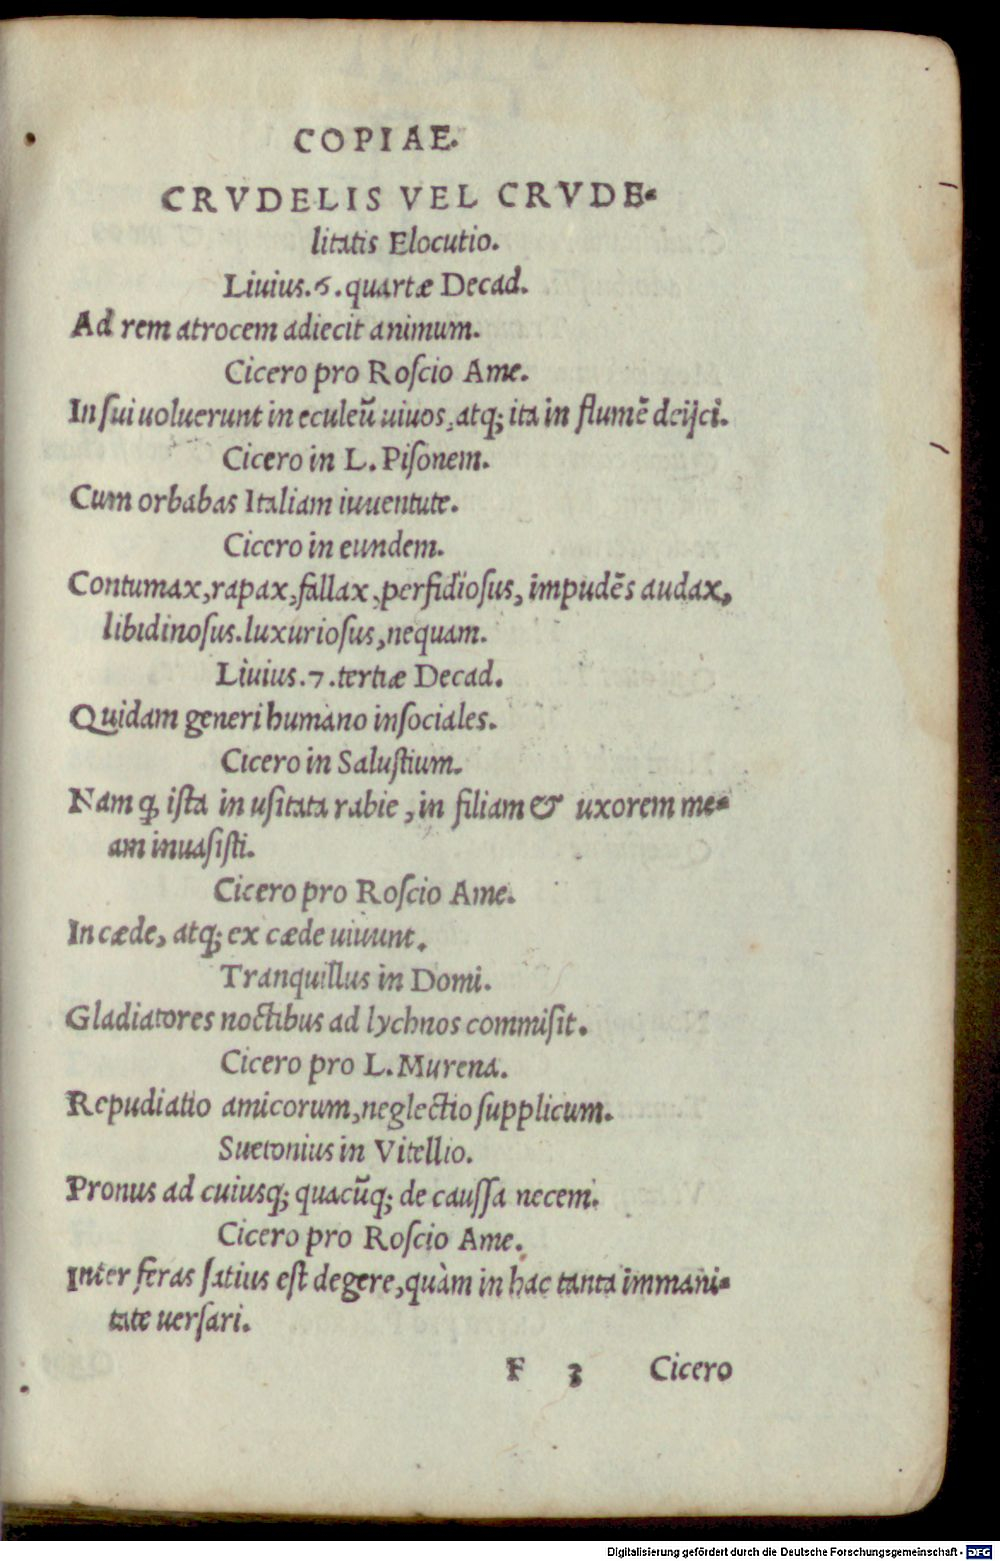 COPIAE.
CRVDELIS VEL CRVDE-
litatis Elocutio.
Liuius.6.quartæ Decad.
Ad rem atrocem adiecit animum.
Cicero pro Roſcio Ame.
Inſui uoluerunt in eculeũ uiuos, atq; ita in flumẽ deijci.
Cicero in L. Piſonem.
Cum orbabas Italiam iuuentute.
Cicero in eundem.
Contumax, rapax, fallax, perfidioſus, impudẽs audax,
libidinoſus. luxurioſus, nequam.
Liuius.7.tertiæ Decad.
Quidam generi humano inſociales.
Cicero in Saluſtium.
Nam ꝗ iſta in uſitata rabie, in filiam & uxorem me-
am inuaſiſti.
Cicero pro Roſcio Ame.
In cæde, atq; ex cæde uiuunt.
Tranquillus in Domi.
Gladiatores noctibus ad lychnos commiſit.
Cicero pro L. Murena.
Repudiatio amicorum, neglectio ſupplicum.
Suetonius in Vitellio.
Pronus ad cuiusq; quacũq; de cauſſa necem.
Cicero pro Roſcio Ame.
Inter feras ſatius eſt degere, quàm in hac tanta immani-
tate uerſari.
F 3 Cicero
Digitalisierung gefördert durch die Deutsche Forschungsgemeinschaft - DFG